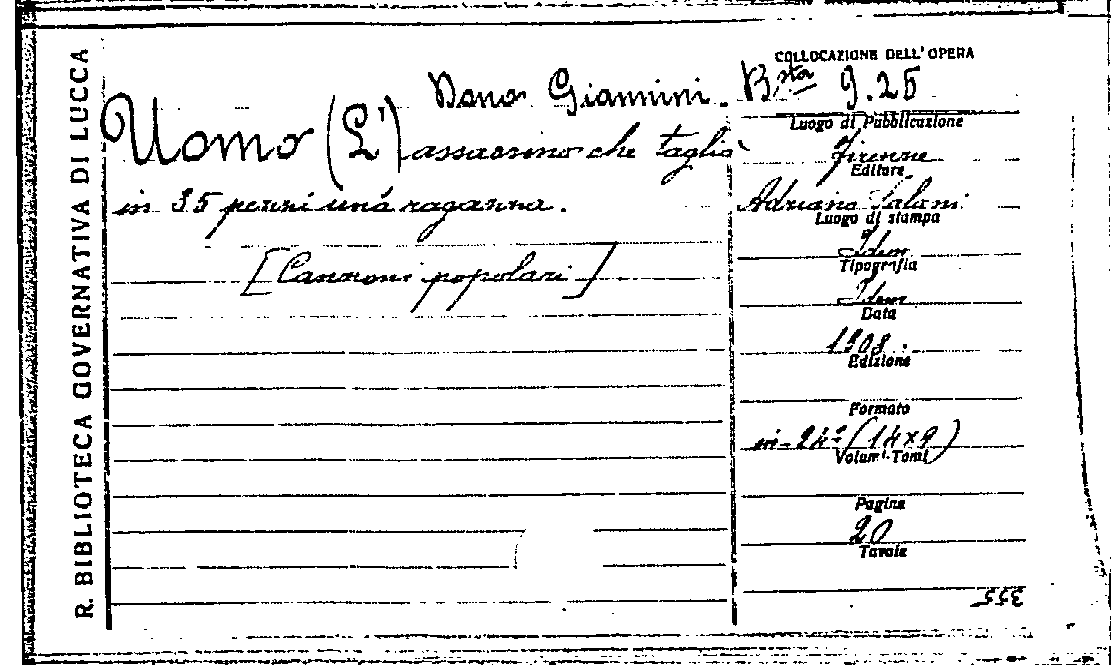 R. BIBLIOTECA GOVERNATIVA DI LUCCA
Dono Giannini.
Uomo (L') assassino che tagliò
in 35 pezzi una ragazza.
[Canzoni popolari]
COLLOCAZIONE DELL'OPERA
Bsta 9.25
Luogo di Pubblicazione
Firenze
Editore
Adriano Salani
Luogo di stampa
Idem
Tipografia
Idem
Data
1908.
Edizione
Formato
in-24° (14x9)
Volumi-Tomi
Pagine
20
Tavole
355